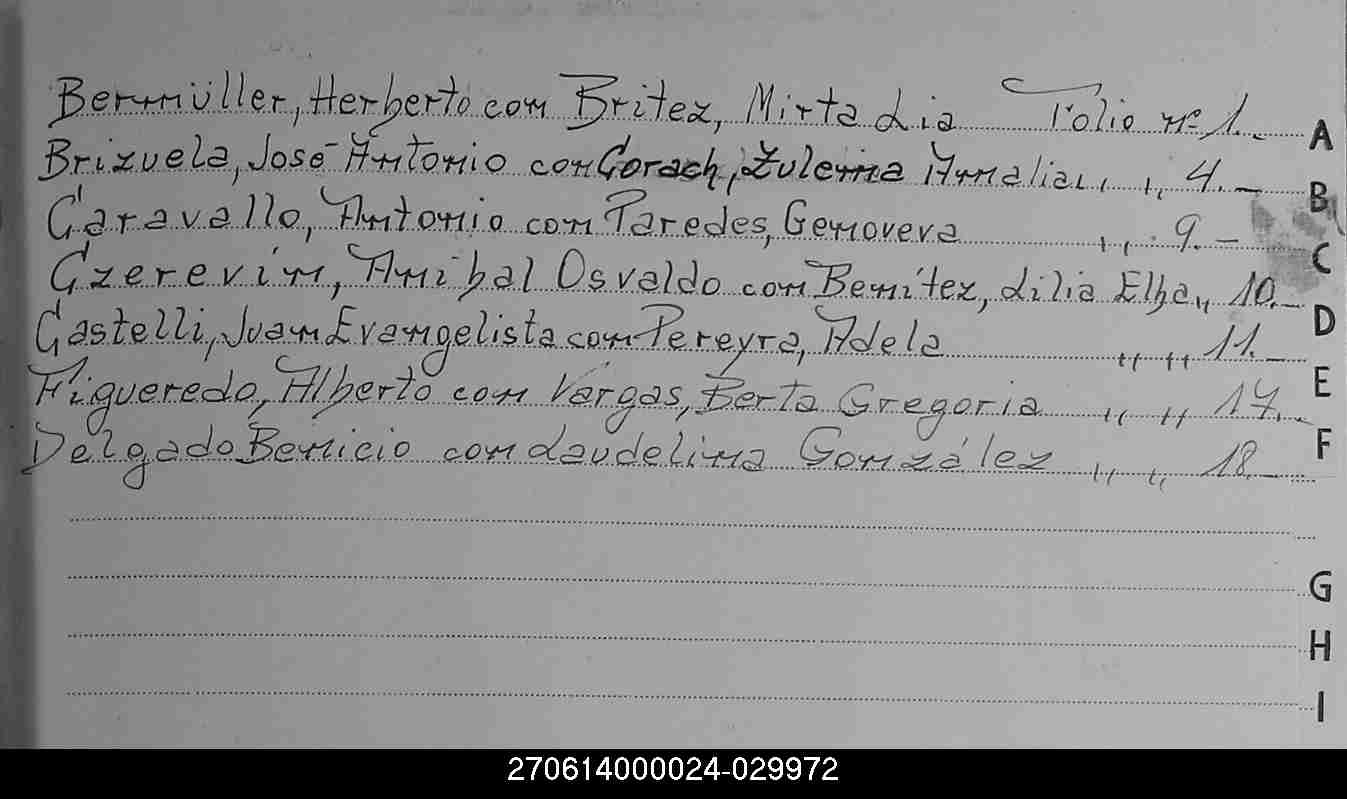 Bernmüller, Herberto con Britez, Mirta Lia Folio nº 1.-
A
Brizuela, José Antonio con Gorach, Zulema Amalia,, ,, 4.-
B
Caravallo, Antonio con Paredes, Genoveva ,, 9.-
C
Czerevin, Anibal Osvaldo con Benítez, Lilia Elba,, 10.-
D
Castelli, Juan Evangelista con Pereyra, Adela ,, ,, 11.-
E
Figueredo, Alberto con Vargas, Berta Gregoria ,, ,, 17.-
F
Delgado Benicio con Laudelina González ,, ,, 18.-
G
H
I
270614000024-029972